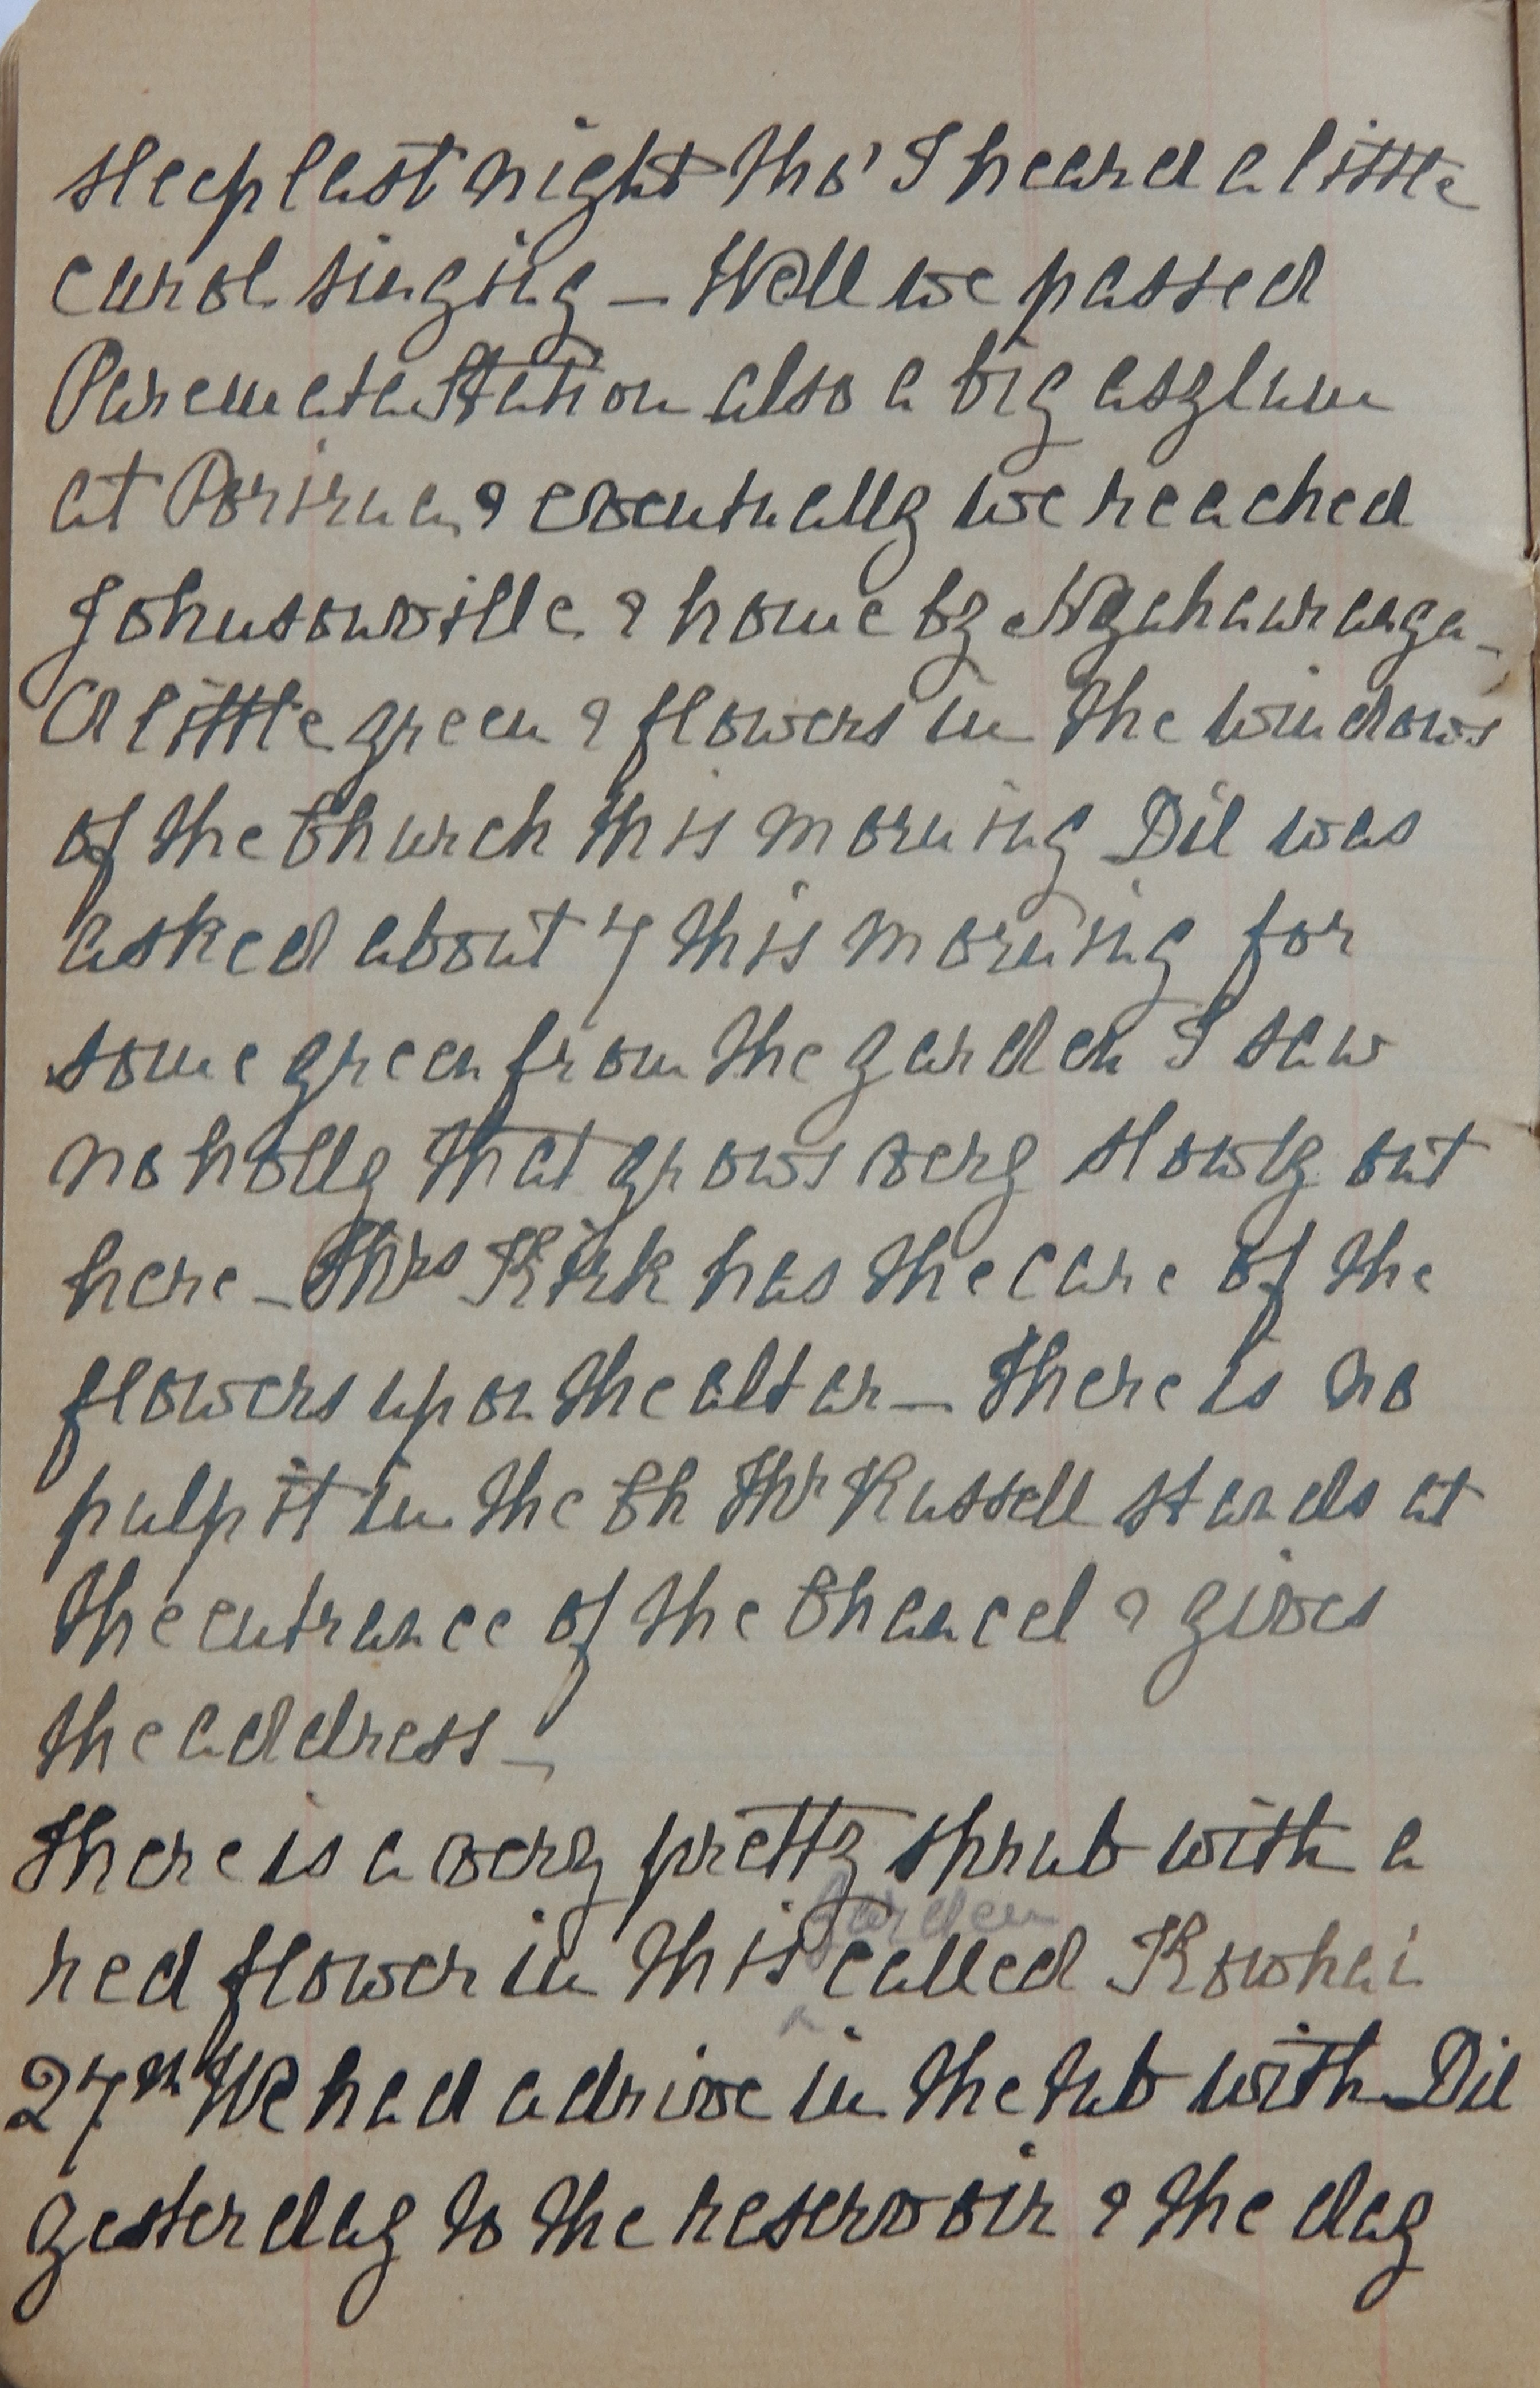 sleep last night tho' I heard a little
carol singing - Well we passed
Paremata Station also a big asylum
at Porirua & eventually we reached
Johnsonville & home by Ngahauranga -
A little green & flowers in the windows
of the Church this morning Dil was
asked about 7 this morning for
some green from the garden I saw
no holly that grows very slowly out
here - Mrs Kirk has the care of the
flowers upon the altar - There is no
pulpit in the Ch Mr Russell stands at
the entrance of the Chancel & gives
the address -
There is a very pretty shrub with a
garden
red flower in this ^ called Kowhai
27th We had a drive in the tub with Dil
yesterday to the reservoir & the day